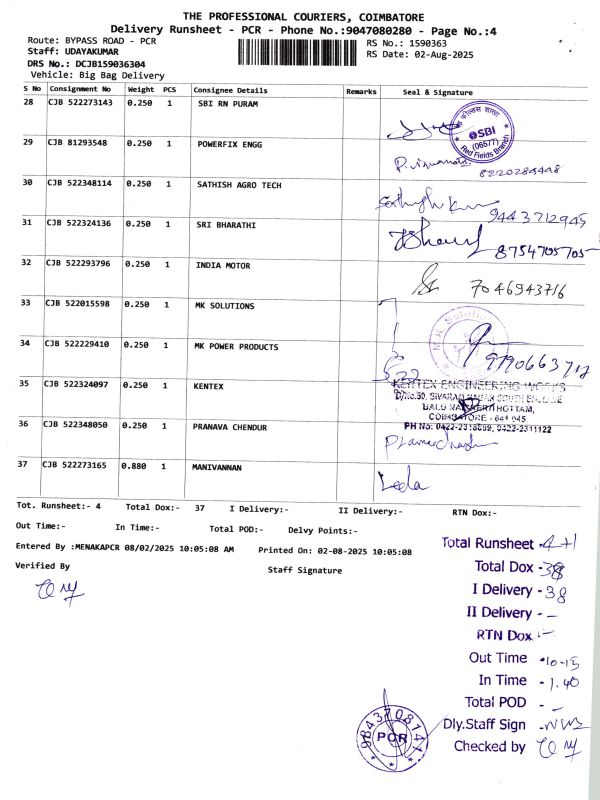 THE PROFESSIONAL COURIERS, COIMBATORE
Delivery Runsheet - PCR - Phone No.:9047080280 - Page No.:4
Route: BYPASS ROAD - PCR
RS No.: 1590363
Staff: UDAYAKUMAR
RS Date: 02-Aug-2025
DRS No.: DCJB159036304
Vehicle: Big Bag Delivery
S No Consignment No Weight PCS Consignee Details Remarks Seal & Signature
28 CJB 522273143 0.250 1 SBI RN PURAM
SBI
(06577)
Red Fields Branch
29 CJB 81293548 0.250 1 POWERFIX ENGG
8220284448
30 CJB 522348114 0.250 1 SATHISH AGRO TECH
9443712945
31 CJB 522324136 0.250 1 SRI BHARATHI
8754705705
32 CJB 522293796 0.250 1 INDIA MOTOR
7046943716
33 CJB 522015598 0.250 1 MK SOLUTIONS
34 CJB 522229410 0.250 1 MK POWER PRODUCTS
35 CJB 522324097 0.250 1 KENTEX
KENTEX ENGINEERING WORKS
COIMBATORE - 641 045
36 CJB 522348050 0.250 1 PRANAVA CHENDUR
37 CJB 522273165 0.880 1 MANIVANNAN
Leela
Tot. Runsheet:- 4 Total Dox:- 37 I Delivery:- II Delivery:- RTN Dox:-
Out Time:- In Time:- Total POD:- Delvy Points:-
Entered By :MENAKAPCR 08/02/2025 10:05:08 AM Printed On: 02-08-2025 10:05:08
Verified By Staff Signature
Total Runsheet - 4+1
Total Dox - 38
I Delivery - 38
II Delivery - -
RTN Dox - -
Out Time - 10-15
In Time - 1.40
Total POD - -
Dly.Staff Sign -
Checked by
9843708141
PCR